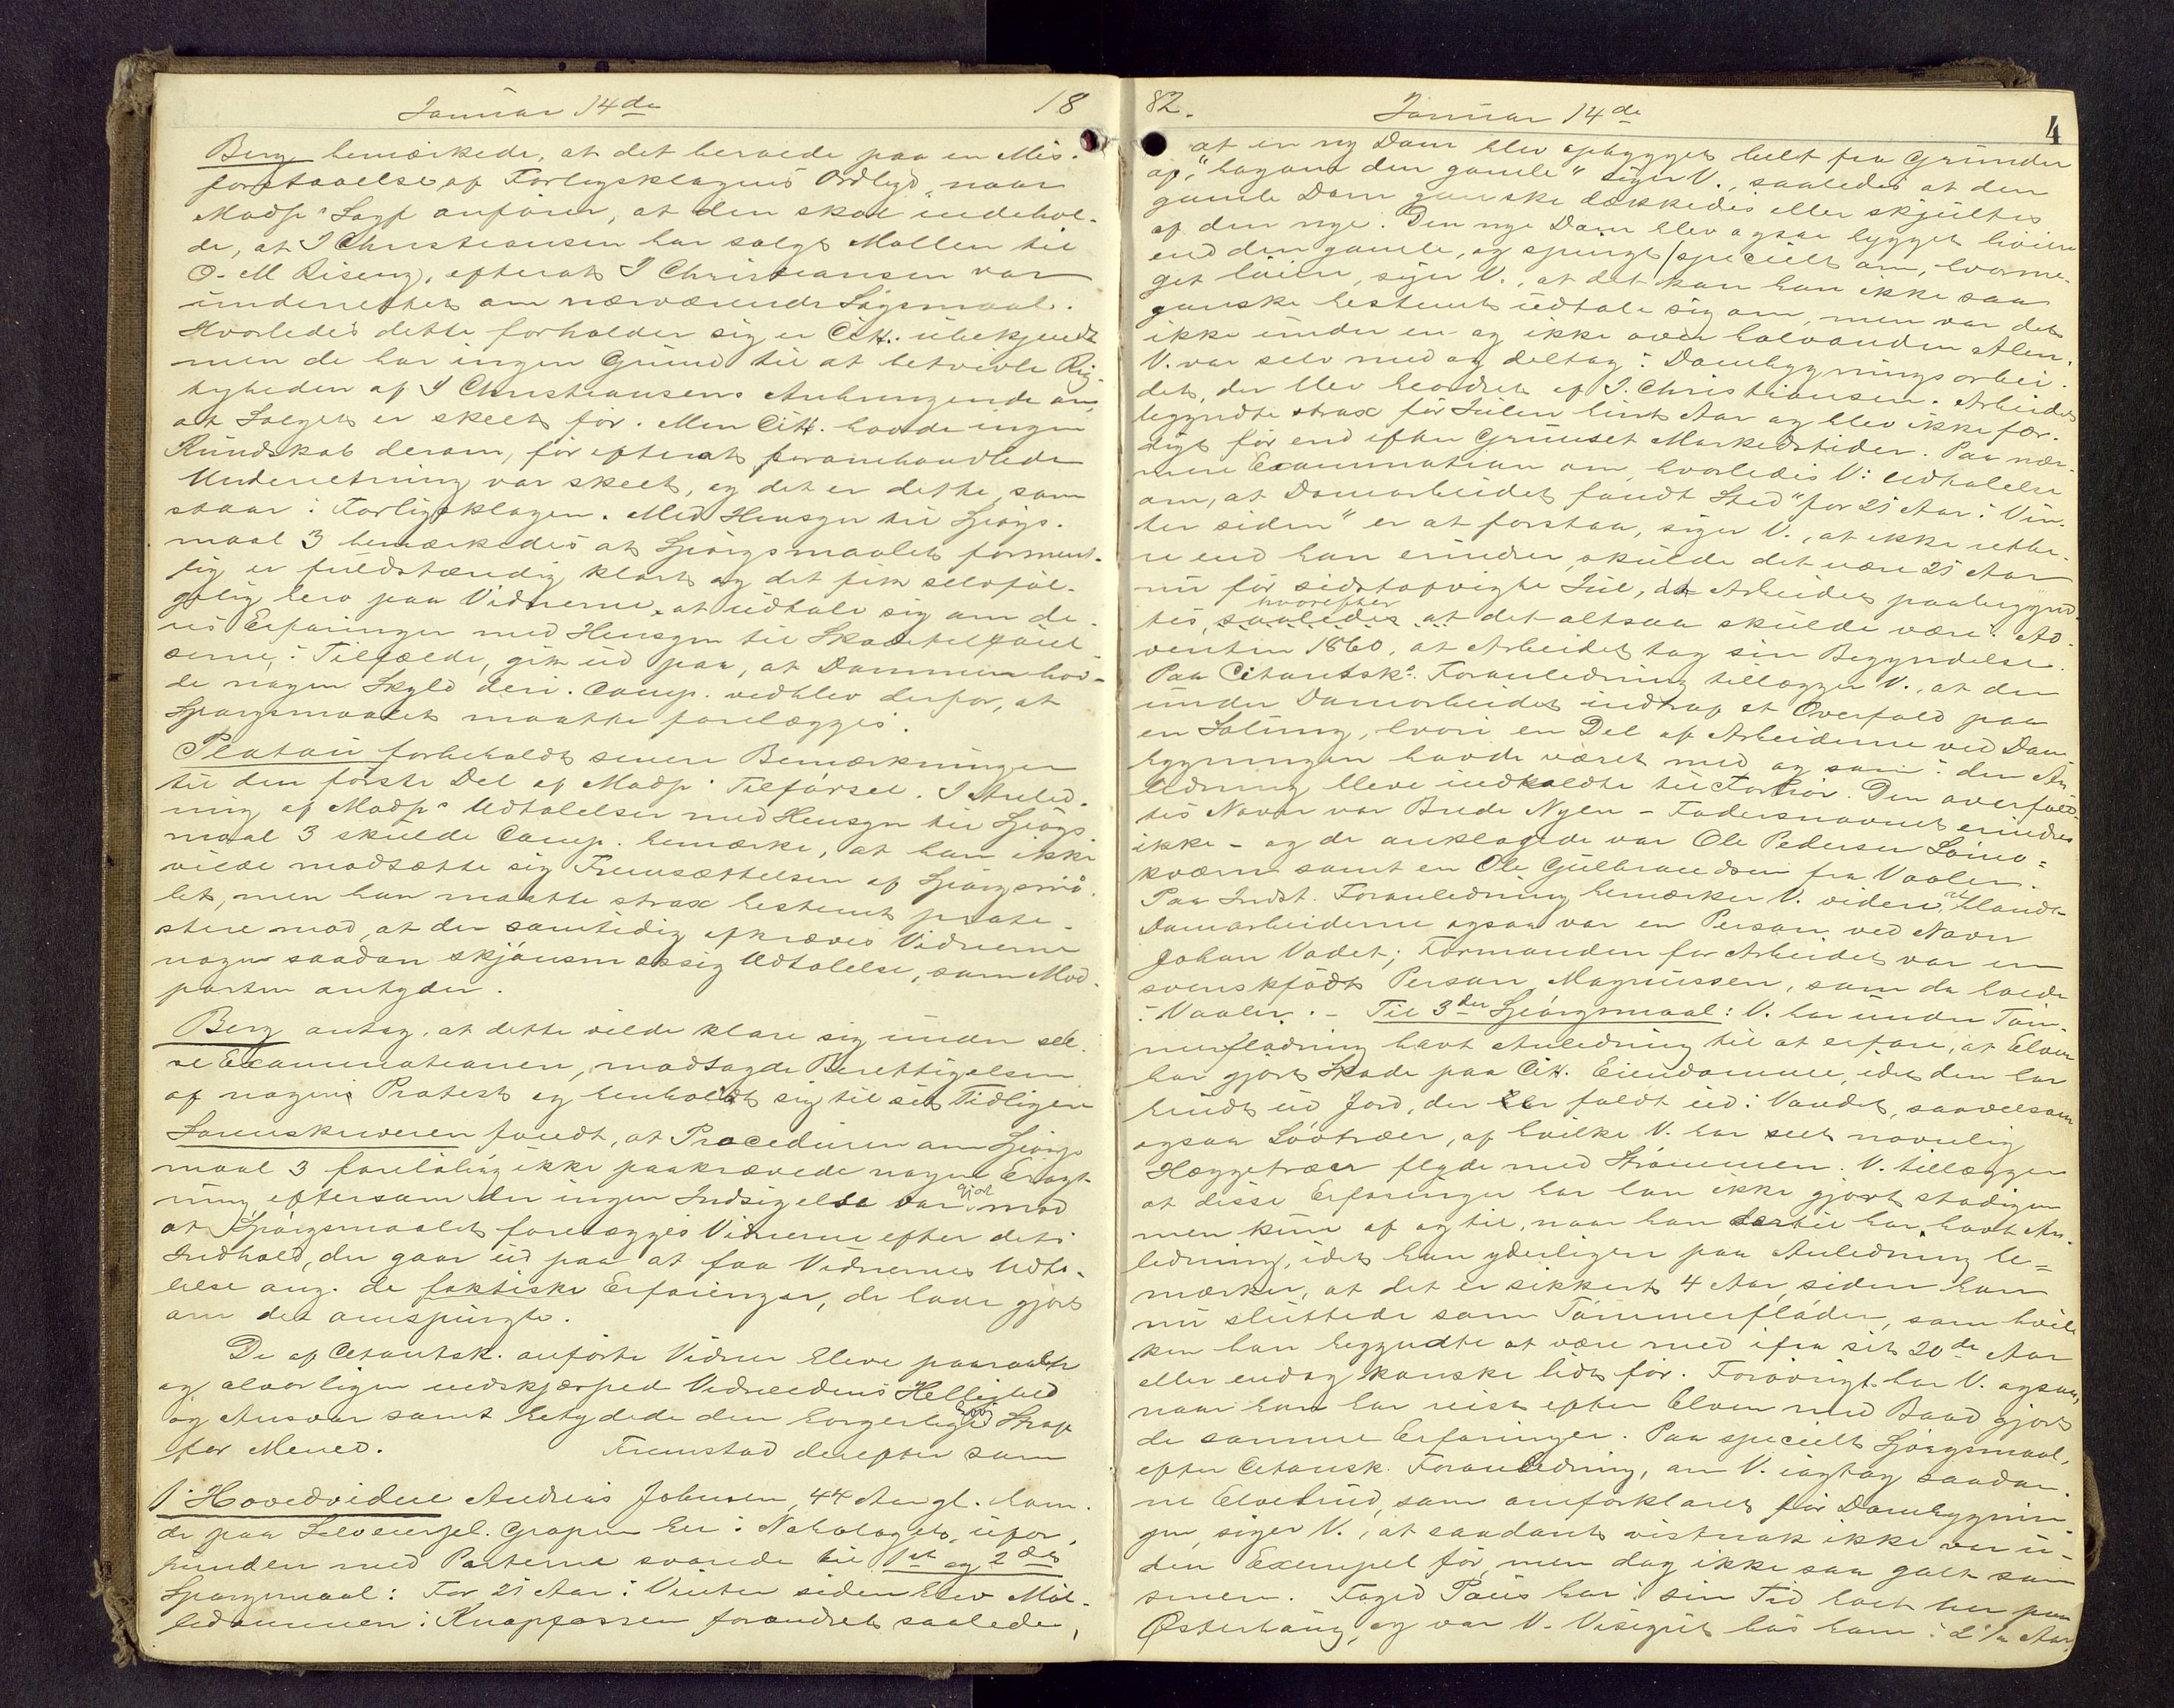 Januar 14de 18
Berg bemærkede, at det beroede paa en Mis-
forstaaelse af Forligsklagens Ordlyd, naar
Modps Sagf anfører, at den skal indehol-
de, at J Christiansen har solgt Møllen til
O. M Riseng, efterat J Christiansen var
underrettet om nærværende Søgsmaal.
Hvorledes dette forholder sig er Citt. ubekjendt
men de har ingen Grund til at betvivle Rig-
tigheden af J Christiansens Anbringende om,
at Salget er skeet før. Men Citt. havde ingen
Kundskab derom, før efterat foranhandlede
Underretning var skeet, og det er dette, som
staar i Forligsklagen. Med Hensyn til Spørgs-
maal 3 bemærkedes at Spørgsmaalet forment-
lig er fuldstændig klart og det fik selvføl-
gelig bero paa Vidnerne, at udtale sig om de-
res Erfaringer med Hensyn til Skadetilføiel
serne, i Tilfælde, gik ud paa, at Dammen hav-
de nogen Skyld deri. Comp. vedblev derfor, at
Spørgsmaalet maatte forelægges.
Platou forbeholdt senere Bemærkninger
til den første Del af Modps Tilførsel. I Anled-
ning af Modps Udtalelser med Hensyn til Spørgs
maal 3 skulde Comp. bemærke, at han ikke
vilde modsætte sig Fremsættelsen af Spørgsmaa-
let, men han maatte strax bestemt prote-
stere mod, at der samtidig afkræves Vidnerne
nogen saadan skjønsmæssig Udtalelse, som Mod-
parten antyder.
Berg antog, at dette vilde klare sig under sel-
ve Examinationen, modsagde Berettigelsen
af nogen Protest og henholdt sig til sit Tidligere
Sorenskriveren fandt, at Proceduren om Spørgs
maal 3 foreløbig ikke paakrævede nogen Eragt-
ning eftersom der ingen Indsigelse var gjort mod
at Spørgsmaalet forelægges Vidnerne efter dets
Indhold, der gaar ud paa at faa Vidnernes Udta-
lelse ang. de faktiske Erfaringer, de have gjort
om det omspurgte.
De af Citantsk. anførte Vidner bleve paaraabt
og alvorligen indskjærped Vidneedens Hellighed
og Ansvar samt betydede den borgerlige Lovs Straf
for Meened. Fremstod derefter som
1. Hovedvidne Andreas Johnsen, 44 Aar gl. hom.
de paa Selveierpl. Grapen her i Nabolaget, ufor
bunden med Parterne svarede til 1st og 2det
Spørgsmaal: For 21 Aar i Vinter siden blev Møl-
ledammen i Knapfossen forandret saaledes,
82. Januar 14de 4
at en ny Dam blev opbygget helt fra Grunden
op, "bagom den gamle" siger V., saaledes at den
gamle Dam ganske dækkedes eller skjultes
af den nye. Den nye Dam blev ogsaa bygget høiere
end den gamle, og spurgt specielt om, hvorme-
get høiere, siger V., at det kan han ikke saa
ganske bestemt udtale sig om, men var det
ikke under en og ikke over halvanden Alen.
V. var selv med og deltog i Dambygningsarbei-
det, der blev beordret af J. Christiansen. Arbeidet
begyndte strax før Julen hint Aar og blev ikke fær-
digt før end efter Grundset Markedstider. Paa nær-
mere Examination om, hvorledes V.s Udtalelse
om, at Damarbeidet fandt Sted "for 21 Aar i Vin-
ter siden" er at forstaa, siger V., at ikke rette-
re end han erindrer, skulde det være 21 Aar
nu før sidstafvigte Jul, da Arbeidet paabegynd-
tes, hvorefter saaledes at det altsaa skulde være i Ad-
venten 1860, at Arbeidet tog sin Begyndelse.
Paa Citantsks Foranledning tillægger V., at der
under Damarbeidet indtraf et Overfald paa
en Solung, hvori en Del af Arbeiderne ved Dam
bygningen havde været med og som i den An
ledning bleve indkaldte til Forhør. Den overfald-
tes Navn var Brede Nyen - Fadersnavnet erindres
ikke - og de anklagede var Ole Pedersen
kværn samt en Ole Gulbrandsen fra Vaaler.
Paa Indst. Foranledning bemærker V. videre, at blandt
Damarbeiderne ogsaa var en Person ved Navn
Johan Vadet; Formanden for Arbeidet var en
svenskfødt Person, Magnussen, som da boede
i Vaaler. - Til 3die Spørgsmaal: V. har under Tøm-
merflødning havt Anledning til at erfare, at Elven
har gjort Skade paa Citt. Eiendomme, idet den har
brudt ud Jord, der er faldt ud i Vandet, saavelsom
ogsaa Løvtræer, af hvilke V. har seet navnlig
Heggetræer flyde med Strømmen. V. tillægger
at disse Erfaringer har han ikke gjort stadigen
men kun af og til, naar han dertil har havt An-
ledning, idet han yderligere paa Anledning be-
mærker, at det er sikkert 4 Aar, siden han
nu sluttede som Tømmerfløder, som hvil
ken han begyndte at være med ifra sit 20de Aar
eller endog kanske lidt før. Forøvrigt har V. ogsaa,
naar han har reist efter Elven med Baad gjort
de samme Erfaringer. Paa specielt Spørgsmaal,
efter Citansk. Foranledning, om V. iagtog saadan-
ne Elvebrud, som omforklaret før Dambygnin-
gen, siger V., at saadant vistnok ikke var u-
den Exempel før, men dog ikke saa galt som
senere. Foged Paus har i sin Tid boet her paa
Østerhaug, og var V. Visergut hos ham i 2 1/2 Aar,